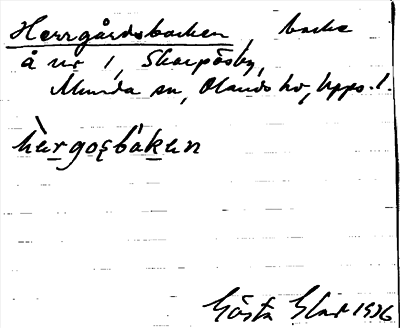 Herrgårdsbacken, backe
å nr 1, Skarpåsby,
Munda sn, Olands hd, Upps. l.
hèrgosbákan
Gösta 1936